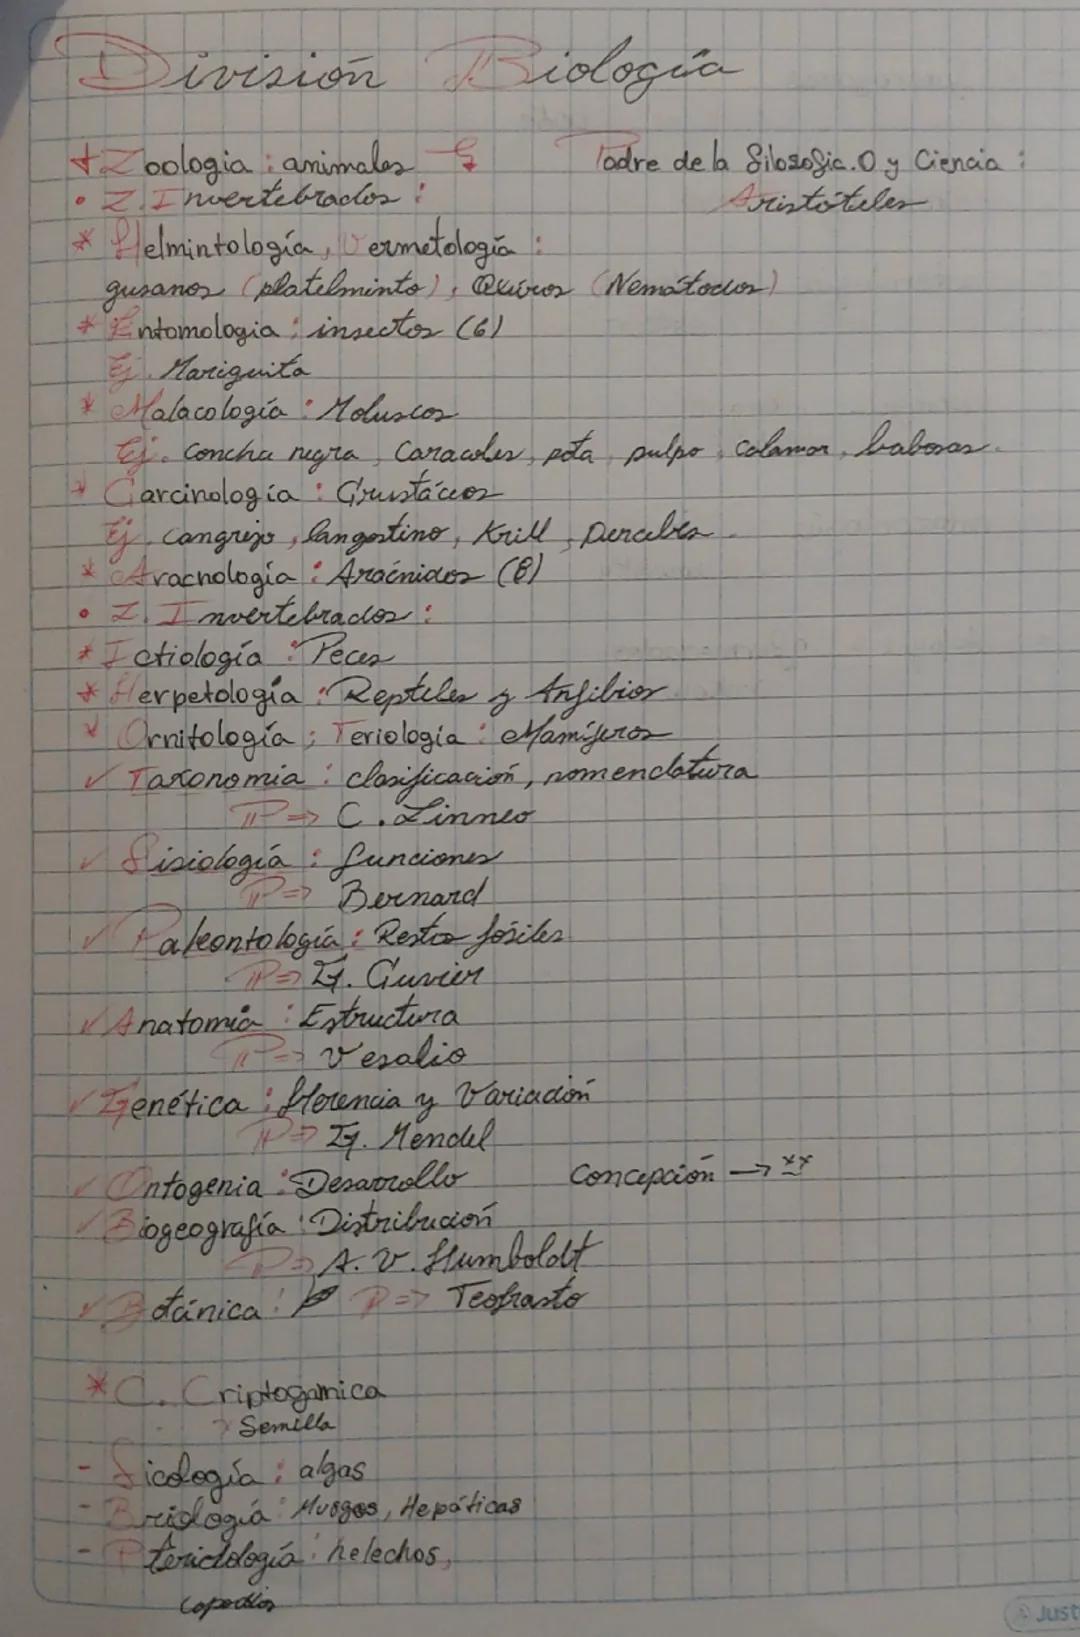 División Biología
+ Zoología : animales
Padre de la filosofía.O y Ciencia :
Aristóteles
• Z. Invertebrados :
* Helmintología, Vermetología :
gusanos (platelminto), (Nemátodos)
* Entomologia : insectos (6)
Ej. Mariquita
* Malacología : Moluscos
Ej. Concha negra, Caracoles, pota, pulpo, Calamar, babosas.
* Carcinología : Crustáceos
Ej. Cangrejo, langostino, Krill, Percebes.
* Aracnología : Arácnidos (8)
• Z. Invertebrados :
* Ictiología : Peces
* Herpetología : Reptiles y Anfibios
* Ornitología ; Teriología : Mamíferos
✓ Taxonomia : clasificación, nomenclatura
P => C. Linneo
✓ Fisiología : funciones
P => Bernard
✓ Paleontología : Restos fósiles
P => G. Cuvier
✓ Anatomia : Estructura
P => Vesalio
✓ Genética : Herencia y Variación
P => G. Mendel
✓ Ontogenia : Desarrollo Concepción → xx
✓ Biogeografía : Distribución
P => A. V. Humboldt
✓ Botánica : P => Teofrasto
* C. Criptogamica
Semilla
- Ficología : algas
- Briología : Musgos, Hepáticas
- Pteridología : helechos,
Just